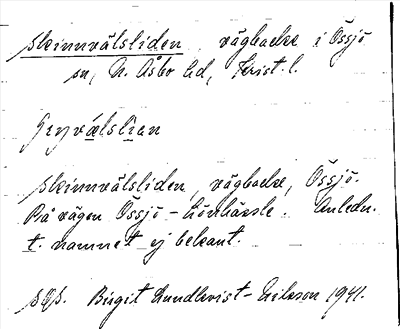 Skinnvälsliden, vägbacke i Össjö
sn, N. Åsbo hd, Krist. l.
Skinnvälsliden, vägbacke, Össjö.
På vägen Össjö – Lönhässle. Anledn.
t. namnet ej bekant.
Birgit Lundkvist-Erikson 1941.